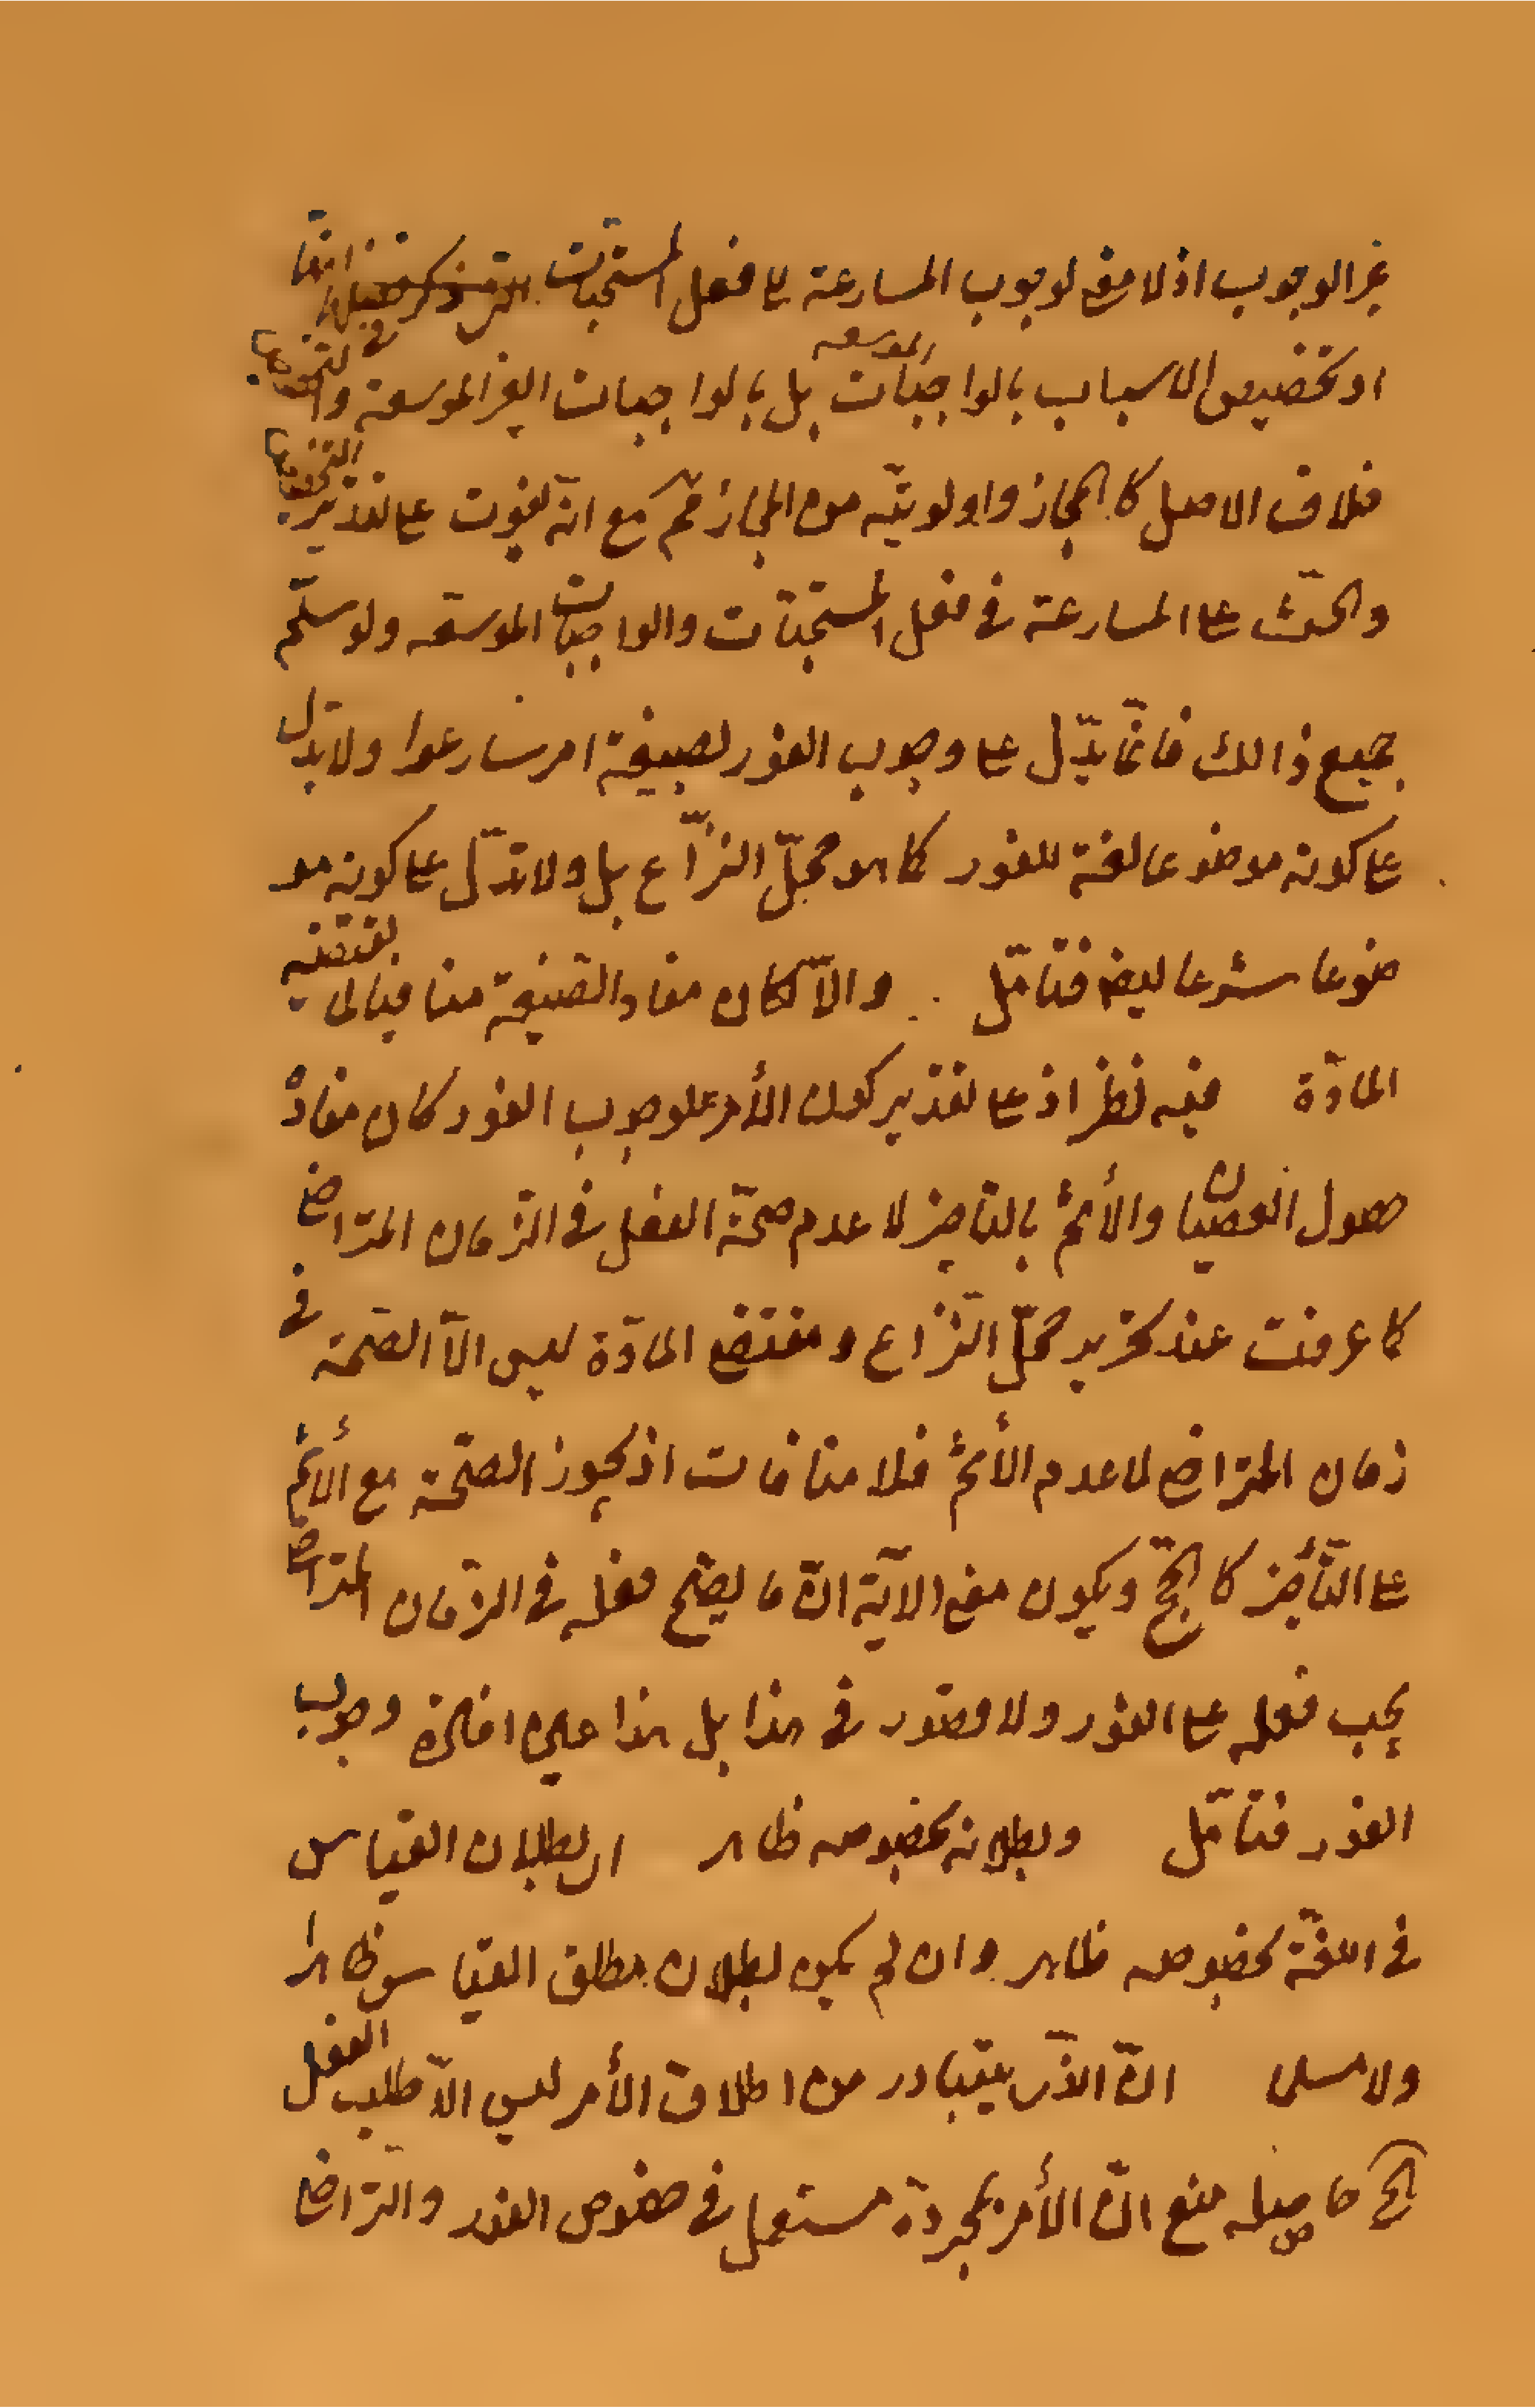 غير الوجوب اذ لا معنى لوجوب المسارعة على فعل المستحبات
او تخصيص الاسباب بالواجبات الموسعه بل بالواجبات الغير الموسعة
خلاف الاصل كالمجاز واولويّته من المجاز ثم مع انّه يفوت على تقدير التخصيص
والحثّ على المسارعة في فعل المستحبّات والواجبات الموسعّه ولو سلّم
جميع ذالك فانّما يدّل على وجوب الفور لصيغة امر سارعوا ولا يدّل
على كونه موضوعا لغة للفور كما هو محلّ النزّاع بل ولا تدّل على كونه مو
ضوعا شرعا ايضا فتامّل والّا لكان مفاد الصّيغة منافيا لما يقتضيه
المادّة فيه نظر اذ على تقدير كون الأمر للوجوب الفور كان مفادّه
حصول العصيان والأثم بالتاخير لا عدم صحّة الفعل في الزّمان المتراخى
كما عرفت عند تحرير محلّ النّزاع و مقتضى المادّة ليس الّا الصّحة فى
زمان المتراخى لا عدم الأثم فلا منافات اذ يجوز الصّحة مع الأثم
على التّأخير كالحجّ ويكون معنى الآية انّ ما يصّح فعله في الزّمان المتراخى
يجب فعله على الفور ولا قصور في هذا بل هذا عين افادة وجوب
الفور فتامّل وبطلانه بخصوصه ظاهر اى بطلان القياس
في اللّغة بخصوصه ظاهر و ان لم يكن بطلان مطلق القياس ظاهرا
ولا مسلما انّ الذّى يتبادر من اطلاق الأمر ليس الّا طلب الفعل
الخ حاصله منع انّ الأمر بمجردّه مستعمل في خصوص الفور والتّراخى